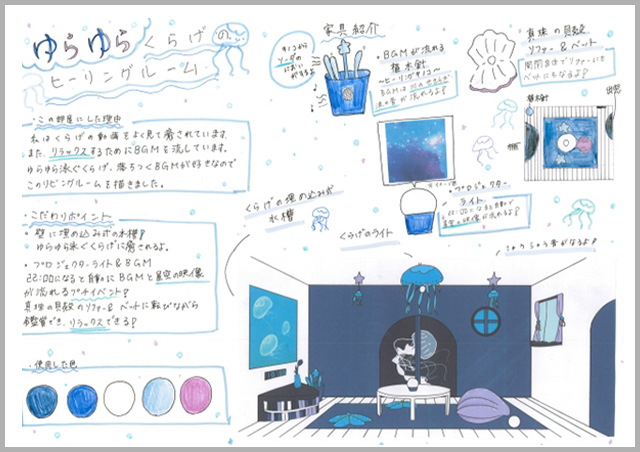 ゆらゆらくらげの
ヒーリングルーム
・この部屋にした理由
私はくらげの動画をよく見て癒されています。
また、リラックスするためにBGMを流しています。
ゆらゆら泳ぐくらげ、落ちつくBGMが好きなので
このリビングルームを描きました。
・こだわりポイント
・壁に埋め込み式の水槽!
ゆらゆら泳ぐくらげに癒されるよ。
・プロジェクターライト&BGM
22:00になると自動にBGMと星空の映像
が流れるプチイベント!
真珠の貝殻のソファー&ベットに転びながら
鑑賞でき、リラックスできる!
・使用した色
家具紹介
・BGMが流れる
植木針
BGMは
真珠の貝殻
ソファー&ベット
ベットにもなるよ!
植木針
・プロジェクター
ライト
22:00になると自動で
星空の映像が流れるよ!
くらげの埋め込み式
水槽
くらげのライト